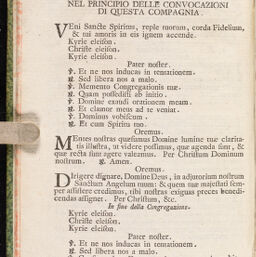 NEL PRINCIPIO DELLE CONVOCAZIONI
DI QUESTA COMPAGNIA.
VEni Sancte Spiritus, reple tuorum, corda Fidelium,
& tui amoris in eis ignem accende.
Kyrie eleison.
Christe eleison.
Kyrie eleison.
Pater noster.
℣. Et ne nos inducas in tentationem.
℟. Sed libera nos a malo.
℣. Memento Congregationis tuæ.
℟. Quam possedisti ab initio.
℣. Domine exaudi orationem meam.
℟. Et clamor meus ad te veniat.
℣. Dominus vobiscum.
℟. Et cum Spiritu tuo.
Oremus.
MEntes nostras quæsumus Domine lumine tuæ clarita-
tis illustra, ut videre possimus, quæ agenda sunt, &
quæ recta sunt agere valeamus. Per Christum Dominum
nostrum. ℟. Amen.
Oremus.
DIrigere dignare, Domine Deus, in adjutorium nostrum
Sanctum Angelum tuum: & quem nuæ majestati sem-
per assistere credimus, tibi nostras exiguas preces benedi-
cendas assignet. Per Christum, &c.
In fine della Congregazione.
Kyrie eleison.
Christe eleison.
Kyrie eleison.
Pater noster.
℣. Et ne nos inducas in tentationem.
℟. Sed libera nos a malo.